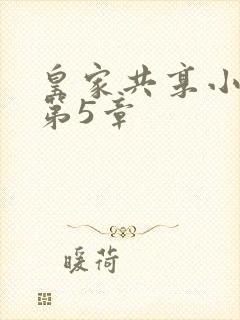 皇家共享小
第5章
暖荷